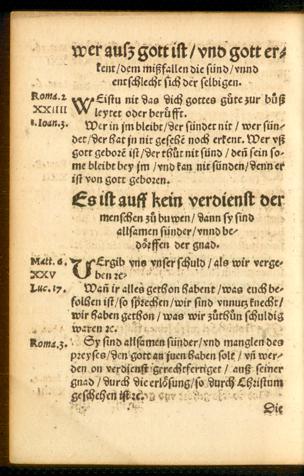 wer ausz gott ist / vnd gott er-
kent / dem mißfallen die sünd / vnnd
entschlecht sich der selbigen.
Roma. 2
XXIIII
1. Ioan. 3.
WEistu nit das dich gottes güte zur bůß
leytet oder berüfft.
Wer in jm bleibt / der sündet nit / wer sün-
det / der hat jn nit gesehē noch erkent. Wer vß
gott geborē ist / der thůt nit sünd / deñ sein so-
me bleibt bey jm / vnd kan nit sünden / denn er
ist von gott geboren.
Es ist auff kein verdienst der
menschen zů buwen / dann sy sind
allsamen sünder / vnnd be-
dörffen der gnad.
Matt. 6.
XXV
Luc. 17.
VErgib vns vnser schuld / als wir verge-
ben ꝛc.
Wañ ir alles gethon habent / was euch be-
folhen ist / so sprechen / wir sind vnnutz knecht /
wir haben gethon / was wir zůthůn schuldig
waren ꝛc.
Roma. 3.
Sy sind allsamen sünder / vnd manglen des
preyses / den gott an juen haben solt / vñ wer-
den on verdienst gerechtfertiget / auß seiner
gnad / durch die erlösung / so durch Christum
geschehen ist ꝛc.
Die